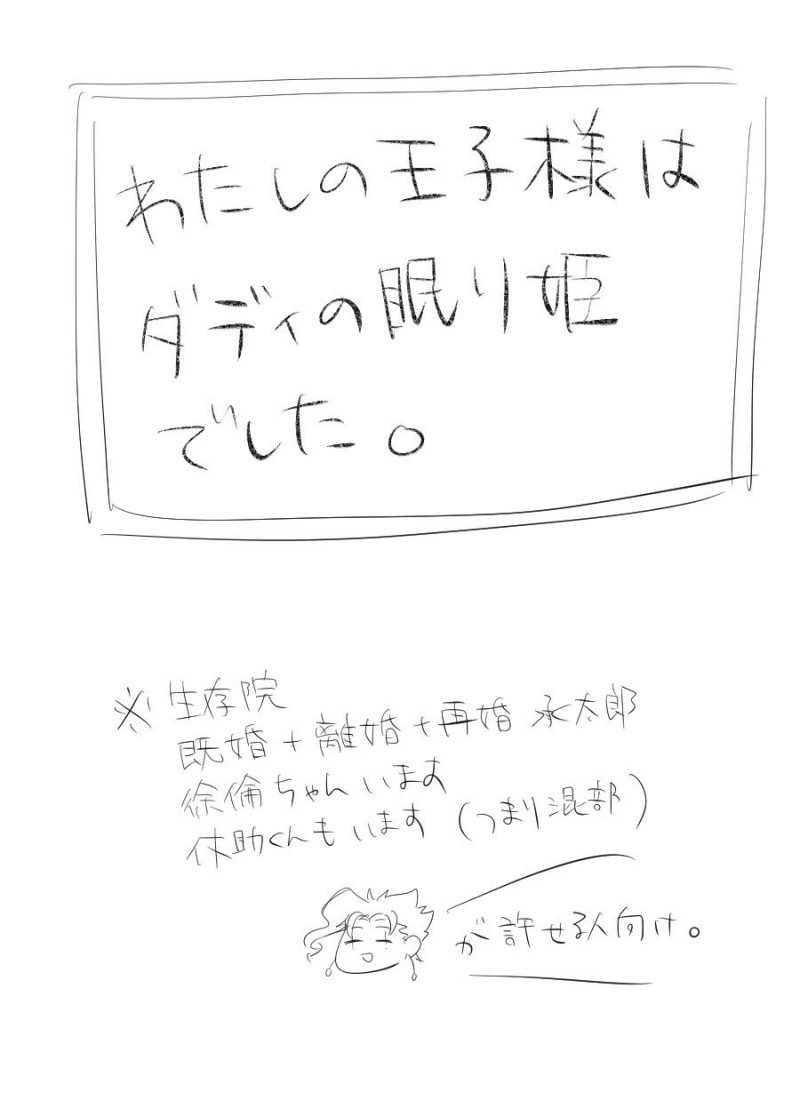 わたしの王子様は
ダディの眠り姫
でした。
※生存院
既婚+離婚+再婚 承太郎
徐倫ちゃんいます
仗助くんもいます(つまり混部)
が許せる人向け。